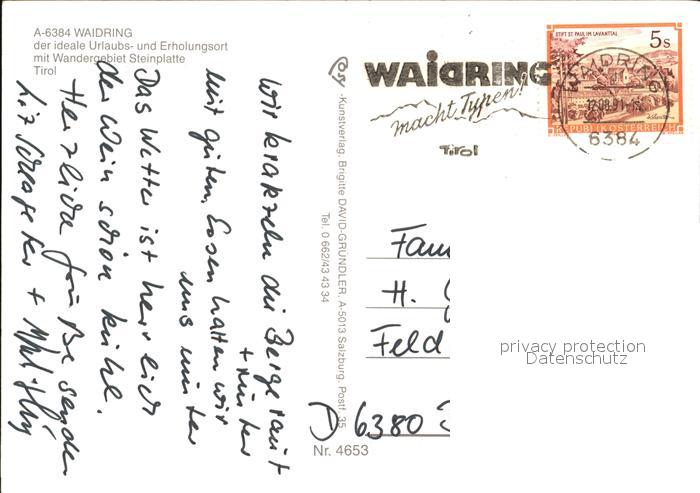 A-6384 WAIDRING
der ideale Urlaubs- und Erholungsort
mit Wandergebiet Steinplatte
Tirol
Wir kraxeln die Berge rauf
+ runter
mit guten Essen halten wir
uns munter
Das Wetter ist herrlich
der Wein schön kühl.
Herzliche Grüße senden
+
Kunstverlag, Brigitte DAVID-GRÜNDLER, A-5013 Salzburg, Postf. 35
Tel. 0 662/43 43 34
WAIDRING
macht Typen!
Tirol
STIFT ST. PAUL IM LAVANTTAL
5s
REPUBLIK ÖSTERREICH
WAIDRING
6384
Fam
H.
Feld
D 6380
Nr. 4653
privacy protection
Datenschutz